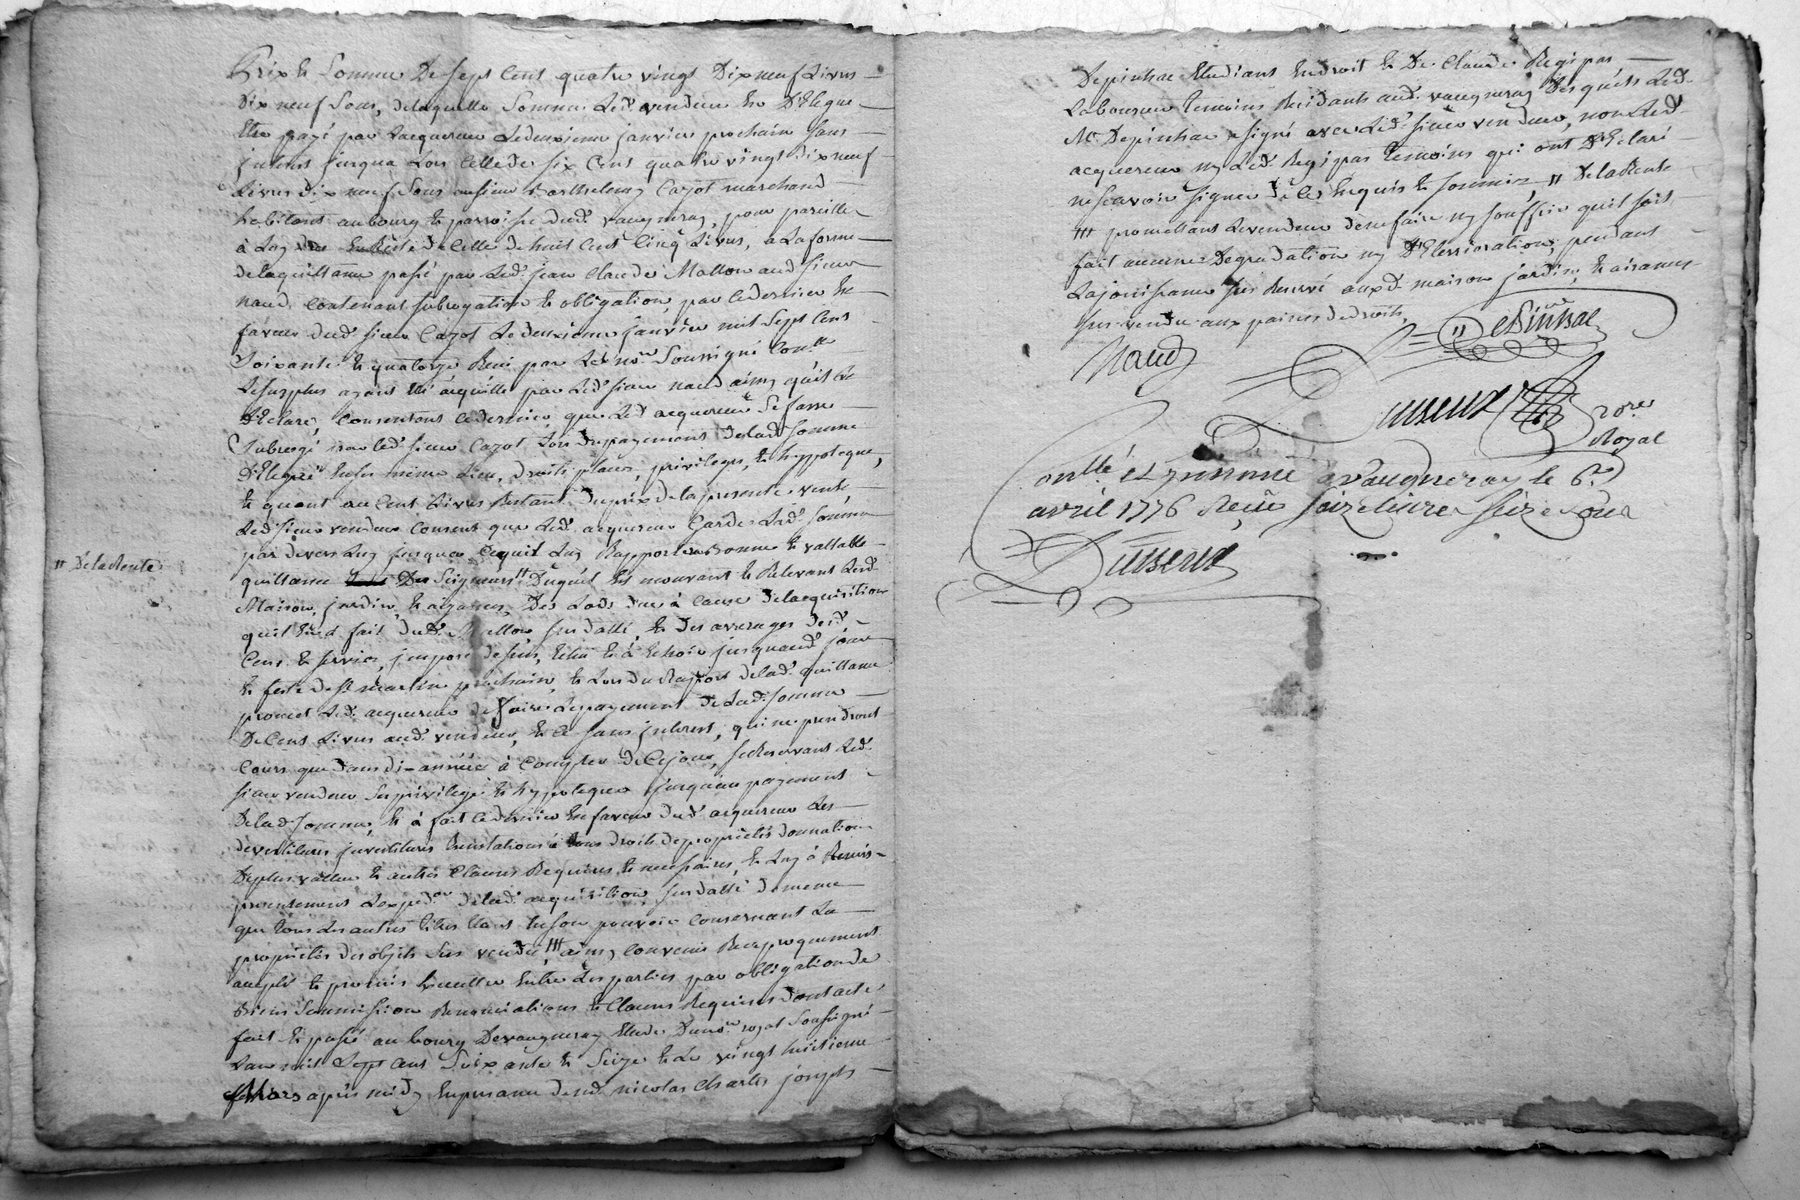 Prix et Somme De Sept Cent quatre vingt Dix neuf Livres
Dix neuf Sous, delaquelle Somme Led. vendeur En Délegue
Etre payé par Lacquereur Ledeuxieme janvier prochain Sans
jnterest jusqua Lors Celle de Six Cent quatre vingt dix neuf
Livres dix neuf Sous ausieur Barthelemy Cazot marchand
habitant aubourg et parroisse dud. vaugneray, pour pareille
à Luy due En Reste de Celle de huit Cent Cinq Livres, a Laforme
delaquittance passé par Led. jean Claude Mallon aud. Sieur
naud, Contenant Subrogation et obligation, par Cedernier En
faveur dud. sieur Cazot Ledeuxieme janvier mil Sept Cent
Soixante et quatorze Recu par Led. nore Soussigné Conllé
Lesurplus ayant été acquitté par Led. sieur naud ainsy quil a
Déclaré, Consentant Cedernier, que Led. acquereur Sefasse
Subrogé par led. sieur Cazot Lors du payement delad. Somme
Déleguée Ensa même Lieu, droits, place, privileges, et hyppoteque,
et quant au Cent Livres Restant duprix de la presente vente,
Led. sieur vendeur Consent que Led. acquereur Garde Lad. Somme
par devers Luy jusquace quil Luy Rapporte Bonne et vallable
quittance Des Seigneurs " Duquel Est mouvant et Relevant Led.
" DelaRente
Maison, jardin, et aizances, Des Lods dus à Cause delacquisition
quil En a fait dud. Mallon, Susdatté, et des arerages desd.
Cens et servis, jmposé dessus, Echu et à Echoir jusquaud. jour
et feste de St martin prochain, et Lors du Raport delad. quittance
promet Led. acquereur de faire Lepayement de Lad. Somme
De Cent Livres aud. vendeur, Et Ce Sans jnterest, qui ne prendront
Cours que dans di-année à Compter de Cejour, Se Reservant Led.
sieur vendeur Sesprivilege et hyppoteque jusquau payement
Delad. Somme, Et à fait Cedernier En faveur dud. acquereur Les
devetitures jnvetitures tous droits depropriétés donnation
Deplus vallue et autres Clauses Requises et necessaires, Et Luy à Remis
presentement Lexpedon delad. acquisition, Susdatté demême
que tous Les autres titres Etant En Son pouvoir Concernant La
propriétés des objets Sus vendu, ††† ainsy Convenu Reciproquement
accepté et promis Executter Entre Les parties par obligation de
Biens Soumission Renonciations et Clauses Requises dont acte
fait Et passé au bourg De vaugneray Etude Dunore royal Soussigné
Lan mil Sept Cent Soixante et Seize Et Le vingt huitieme
Mars après midy En presence de sr. nicolas Charles joseph
Depinhac Etudiant En droit et De Claude Regipas
Laboureur temoins Residants aud. vaugneray Desquels Led.
Mr. Depinhac a signé avec Led. sieur vendeur, non Led.
acquereur ny Led. Regipas temoins qui ont Déclaré
nesçavoir signer de Ce Enquis et Sommés, " DelaRente
††† promettant Levendeur denefaire ny Souffrir quil Soit
fait aucune Dégradation ny Déterioration, pendant
Lajouissance Sus Reservé auxd. maison jardin, et aisances
Sus vendu aux peines de droits,
Naud DePinhac
Duseux nore
Royal
Conllé Et Insinué a Vaugneray le 6.
avril 1776 Reçu Seize livres Seize Sous
Duseux